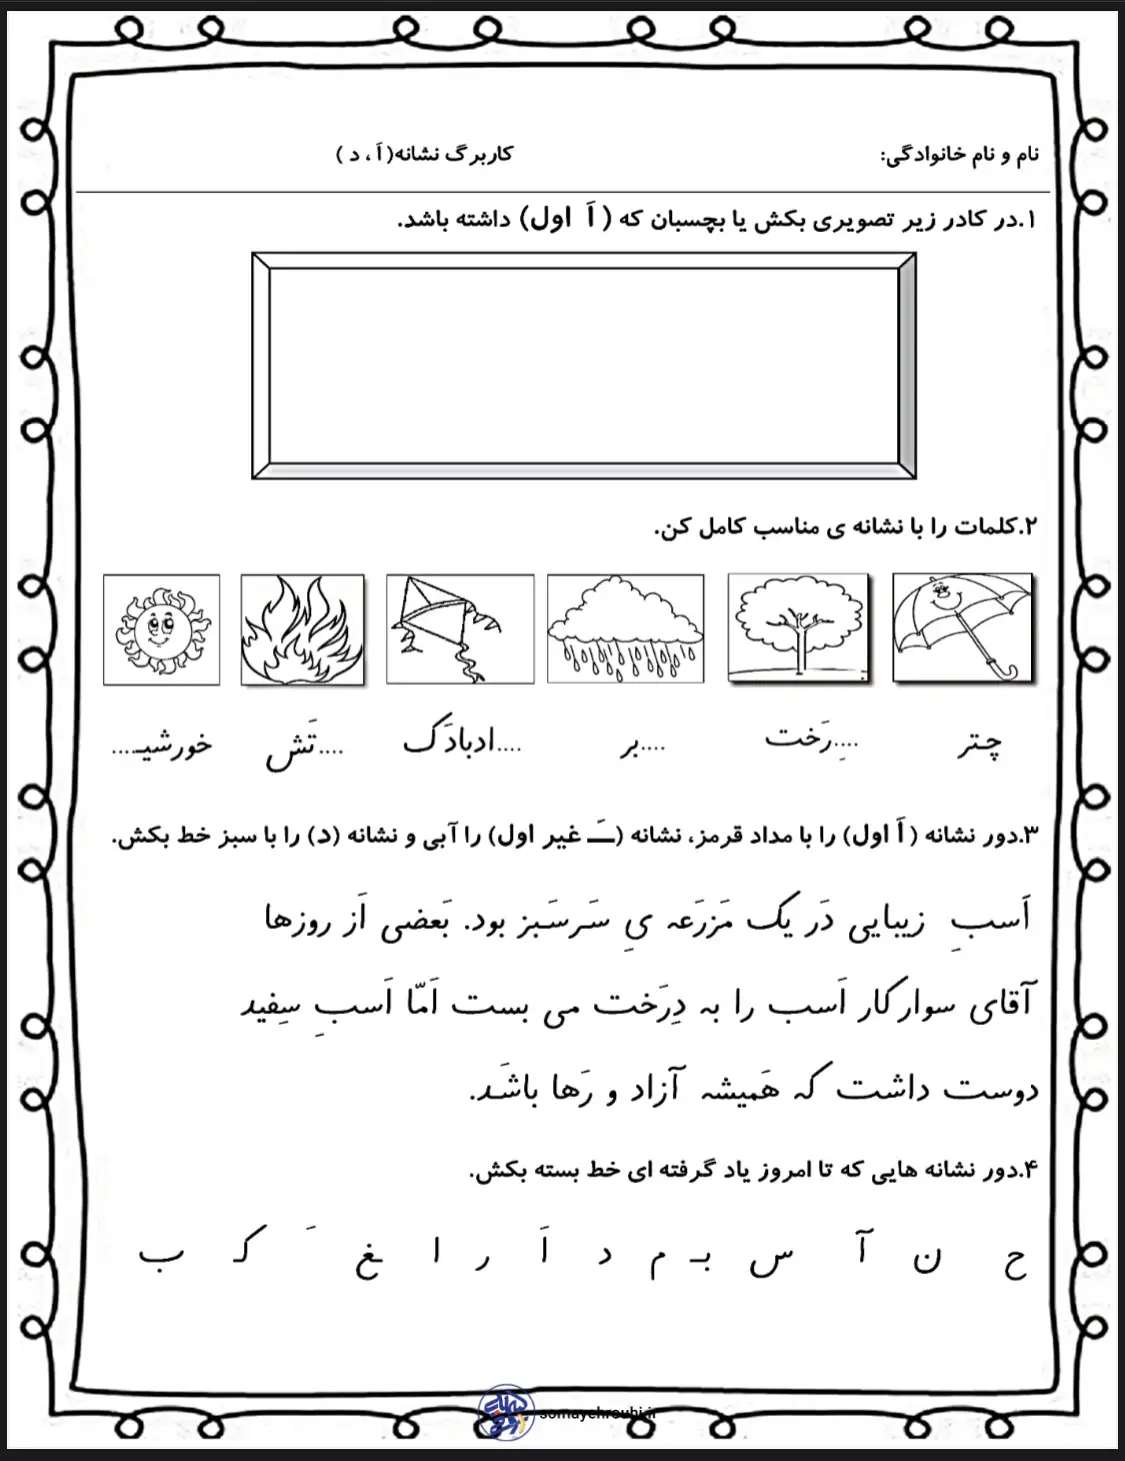 نام و نام خانوادگی: کاربرگ نشانه( اَ ، د )
۱.در کادر زیر تصویری بکش یا بچسبان که ( اَ اول) داشته باشد.
۲.کلمات را با نشانه ی مناسب کامل کن.
چتر ....ِرَخت ....بر ....ادبادَک ....تَش خورشیـ....
۳.دور نشانه ( اَ اول) را با مداد قرمز، نشانه (ــَـ غیر اول) را آبی و نشانه (د) را با سبز خط بکش.
اَسبِ زیبایی دَر یک مَزرَعه یِ سَرسَبز بود. بَعضی اَز روزها
آقای سوارکار اَسب را به دِرَخت می بست اَمّا اَسبِ سِفید
دوست داشت که هَمیشه آزاد و رَها باشَد.
۴.دور نشانه هایی که تا امروز یاد گرفته ای خط بسته بکش.
ح ن آ س بـ م د اَ ر ا ـغ َ کـ ب
somayehrouhi.ir